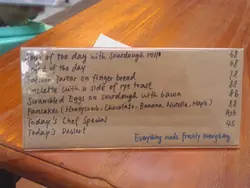 Soup of the day with sourdough roll 68
of the day 68
on finger bread 78
Omlette with a side of rye toast 88
Scrambled Eggs on Sourdough with bacon 86
Pancakes (Honeycomb, Chocolate, Banana, Nutella, Maple) 88
Today's Chef Special Ask
Today's Dessert us
Everything made freshly everyday